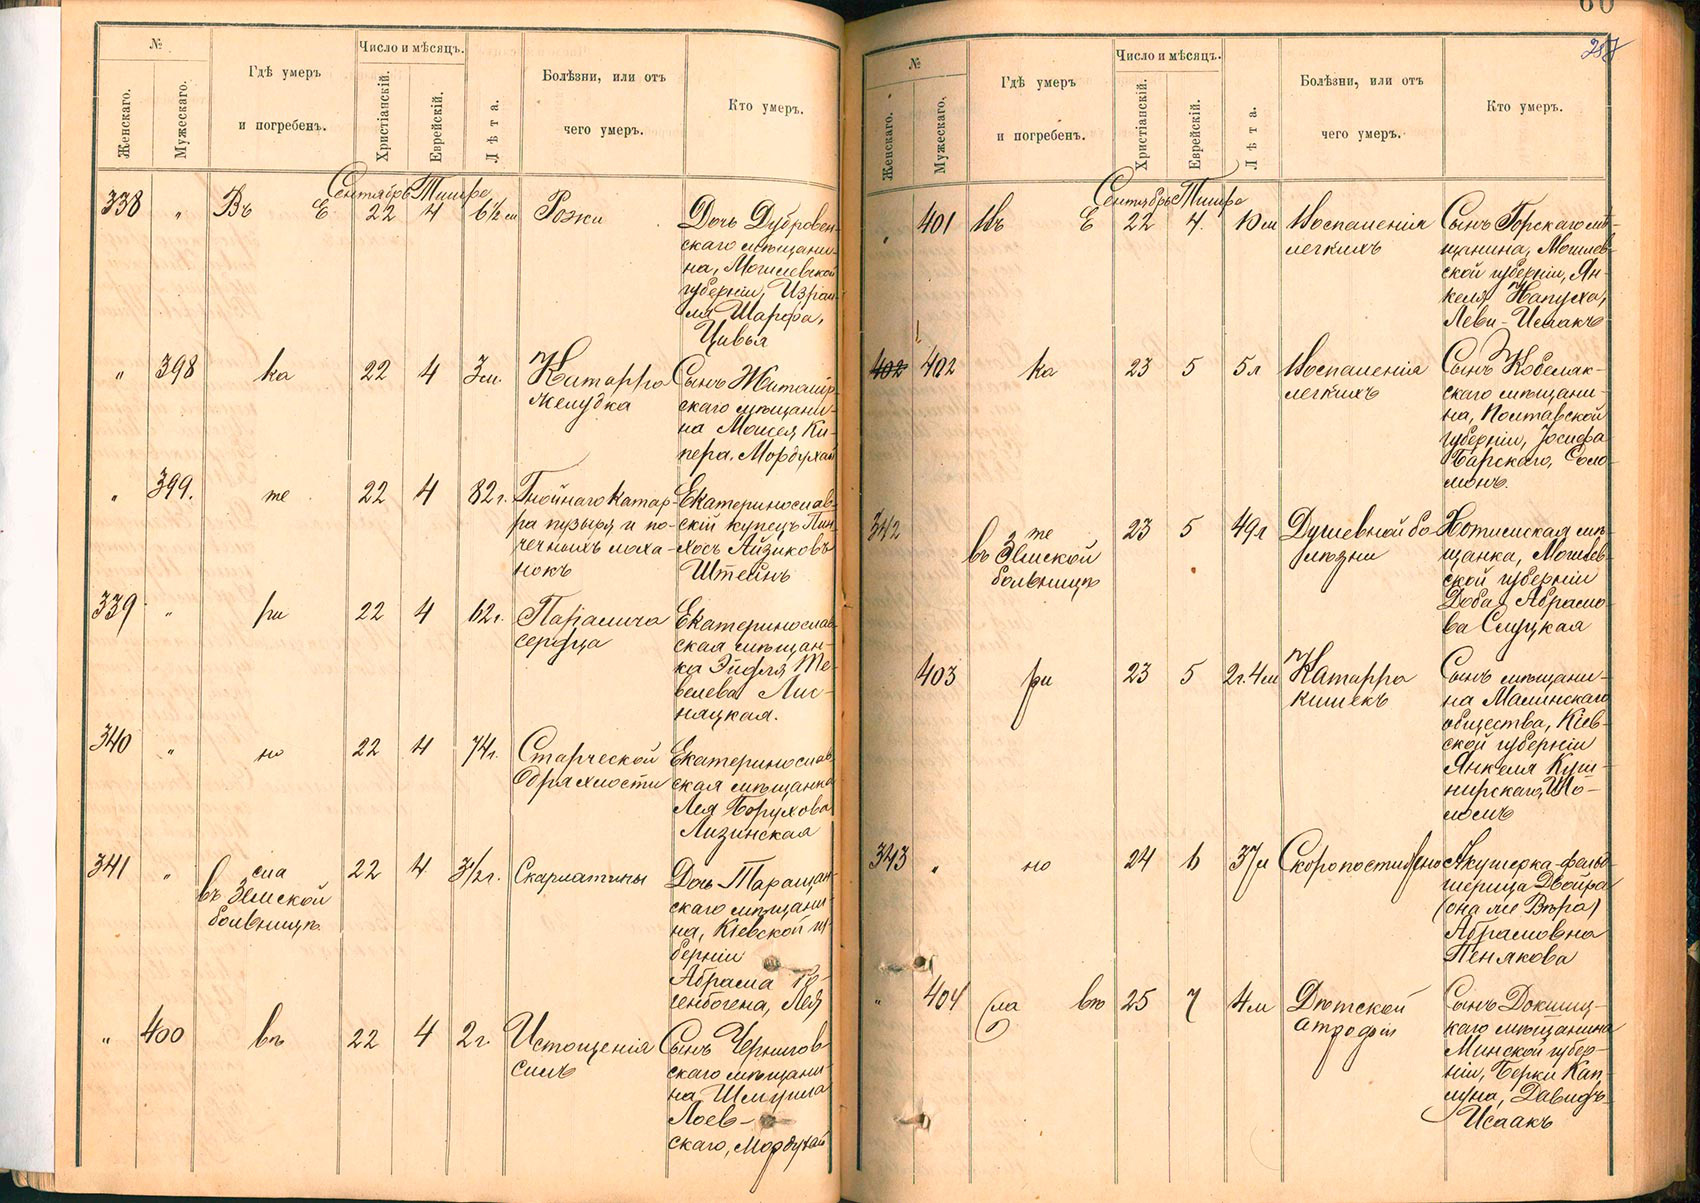 №
Женскаго.
Мужескаго.
Гдѣ умеръ
и погребенъ.
Число и мѣсяцъ.
Христіанскій.
Еврейскій.
Лѣта.
Болѣзни, или отъ
чего умеръ.
Кто умеръ.
Сентябрь Тишре
338 " Въ Е 22 4 6½ м Рожи
Дочь Дубровен-
скаго мѣщани-
на, Могилевской
губерніи, Израи-
ля Шарфа,
Цивья
" 398 ка 22 4 3 м. Катарра
желудка
Сынъ Житомір-
скаго мѣщани-
на Мошея Ки-
пера, Мордухай
" 399. те 22 4 82 г. Гнойнаго катар-
ра пузыря и по-
чечныхъ лоха-
нокъ
Екатеринослав-
скій купецъ Пин-
хосъ Айзиковъ
Штейнъ
339 " ри 22 4 62 г. Паралича
сердца
Екатеринослав-
ская мѣщан-
ка Эйдля Те-
велева Лис-
няцкая.
340 " но 22 4 74 г. Старческой
дряхлости
Екатеринослав-
ская мѣщанка
Лея Борухова
Лизинская
341 " сла
въ Земской
больницѣ
22 4 3½ г. Скарлатины
Дочь Таращан-
скаго мѣщани-
на, Кіевской гу-
берніи
Абрама Ге-
генбогена, Лея
" 400 въ 22 4 2 г. Истощенія
силъ
Сынъ Чернигов-
скаго мѣщани-
на Шмуила
Лоев-
скаго, Мордухай
60
№
Женскаго.
Мужескаго.
Гдѣ умеръ
и погребенъ.
Число и мѣсяцъ.
Христіанскій.
Еврейскій.
Лѣта.
Болѣзни, или отъ
чего умеръ.
Кто умеръ.
Сентябрь Тишре
" 401 въ Е 22 4. 10 м Воспаленія
легкихъ
Сынъ Горскаго мѣ-
щанина, Могилев-
ской губерніи, Ян-
келя Напуха,
Леви-Исаакъ
402 402 ка 23 5 5 л Воспаленія
легкихъ
Сынъ Кобеляк-
скаго мѣщани-
на, Полтавской
губерніи, Іосифа
Барскаго, Соло-
монъ.
342 те
въ Земской
больницѣ
23 5 49 л Душевной бо-
лѣзни
Хотимская мѣ-
щанка, Могилев-
ской губерніи
Доба Абрамо-
ва Слуцкая
403 ри 23 5 2 г. 4 м Катарра
кишекъ
Сынъ мѣщани-
на Малинскаго
общества, Кіев-
ской губерніи
Янкеля Куш-
нирскаго, Шо-
ломъ
343 " но 24 6 37 л Скоропостижно
Акушерка-фельд-
шерица Двойра
(она же Вѣра)
Абрамовна
Пенякова
" 404 сла въ 25 7 4 м Дѣтской
атрофіи
Сынъ Докшиц-
каго мѣщанина
Минской губер-
ніи, Берки Кап-
луна, Давидъ-
Исаакъ